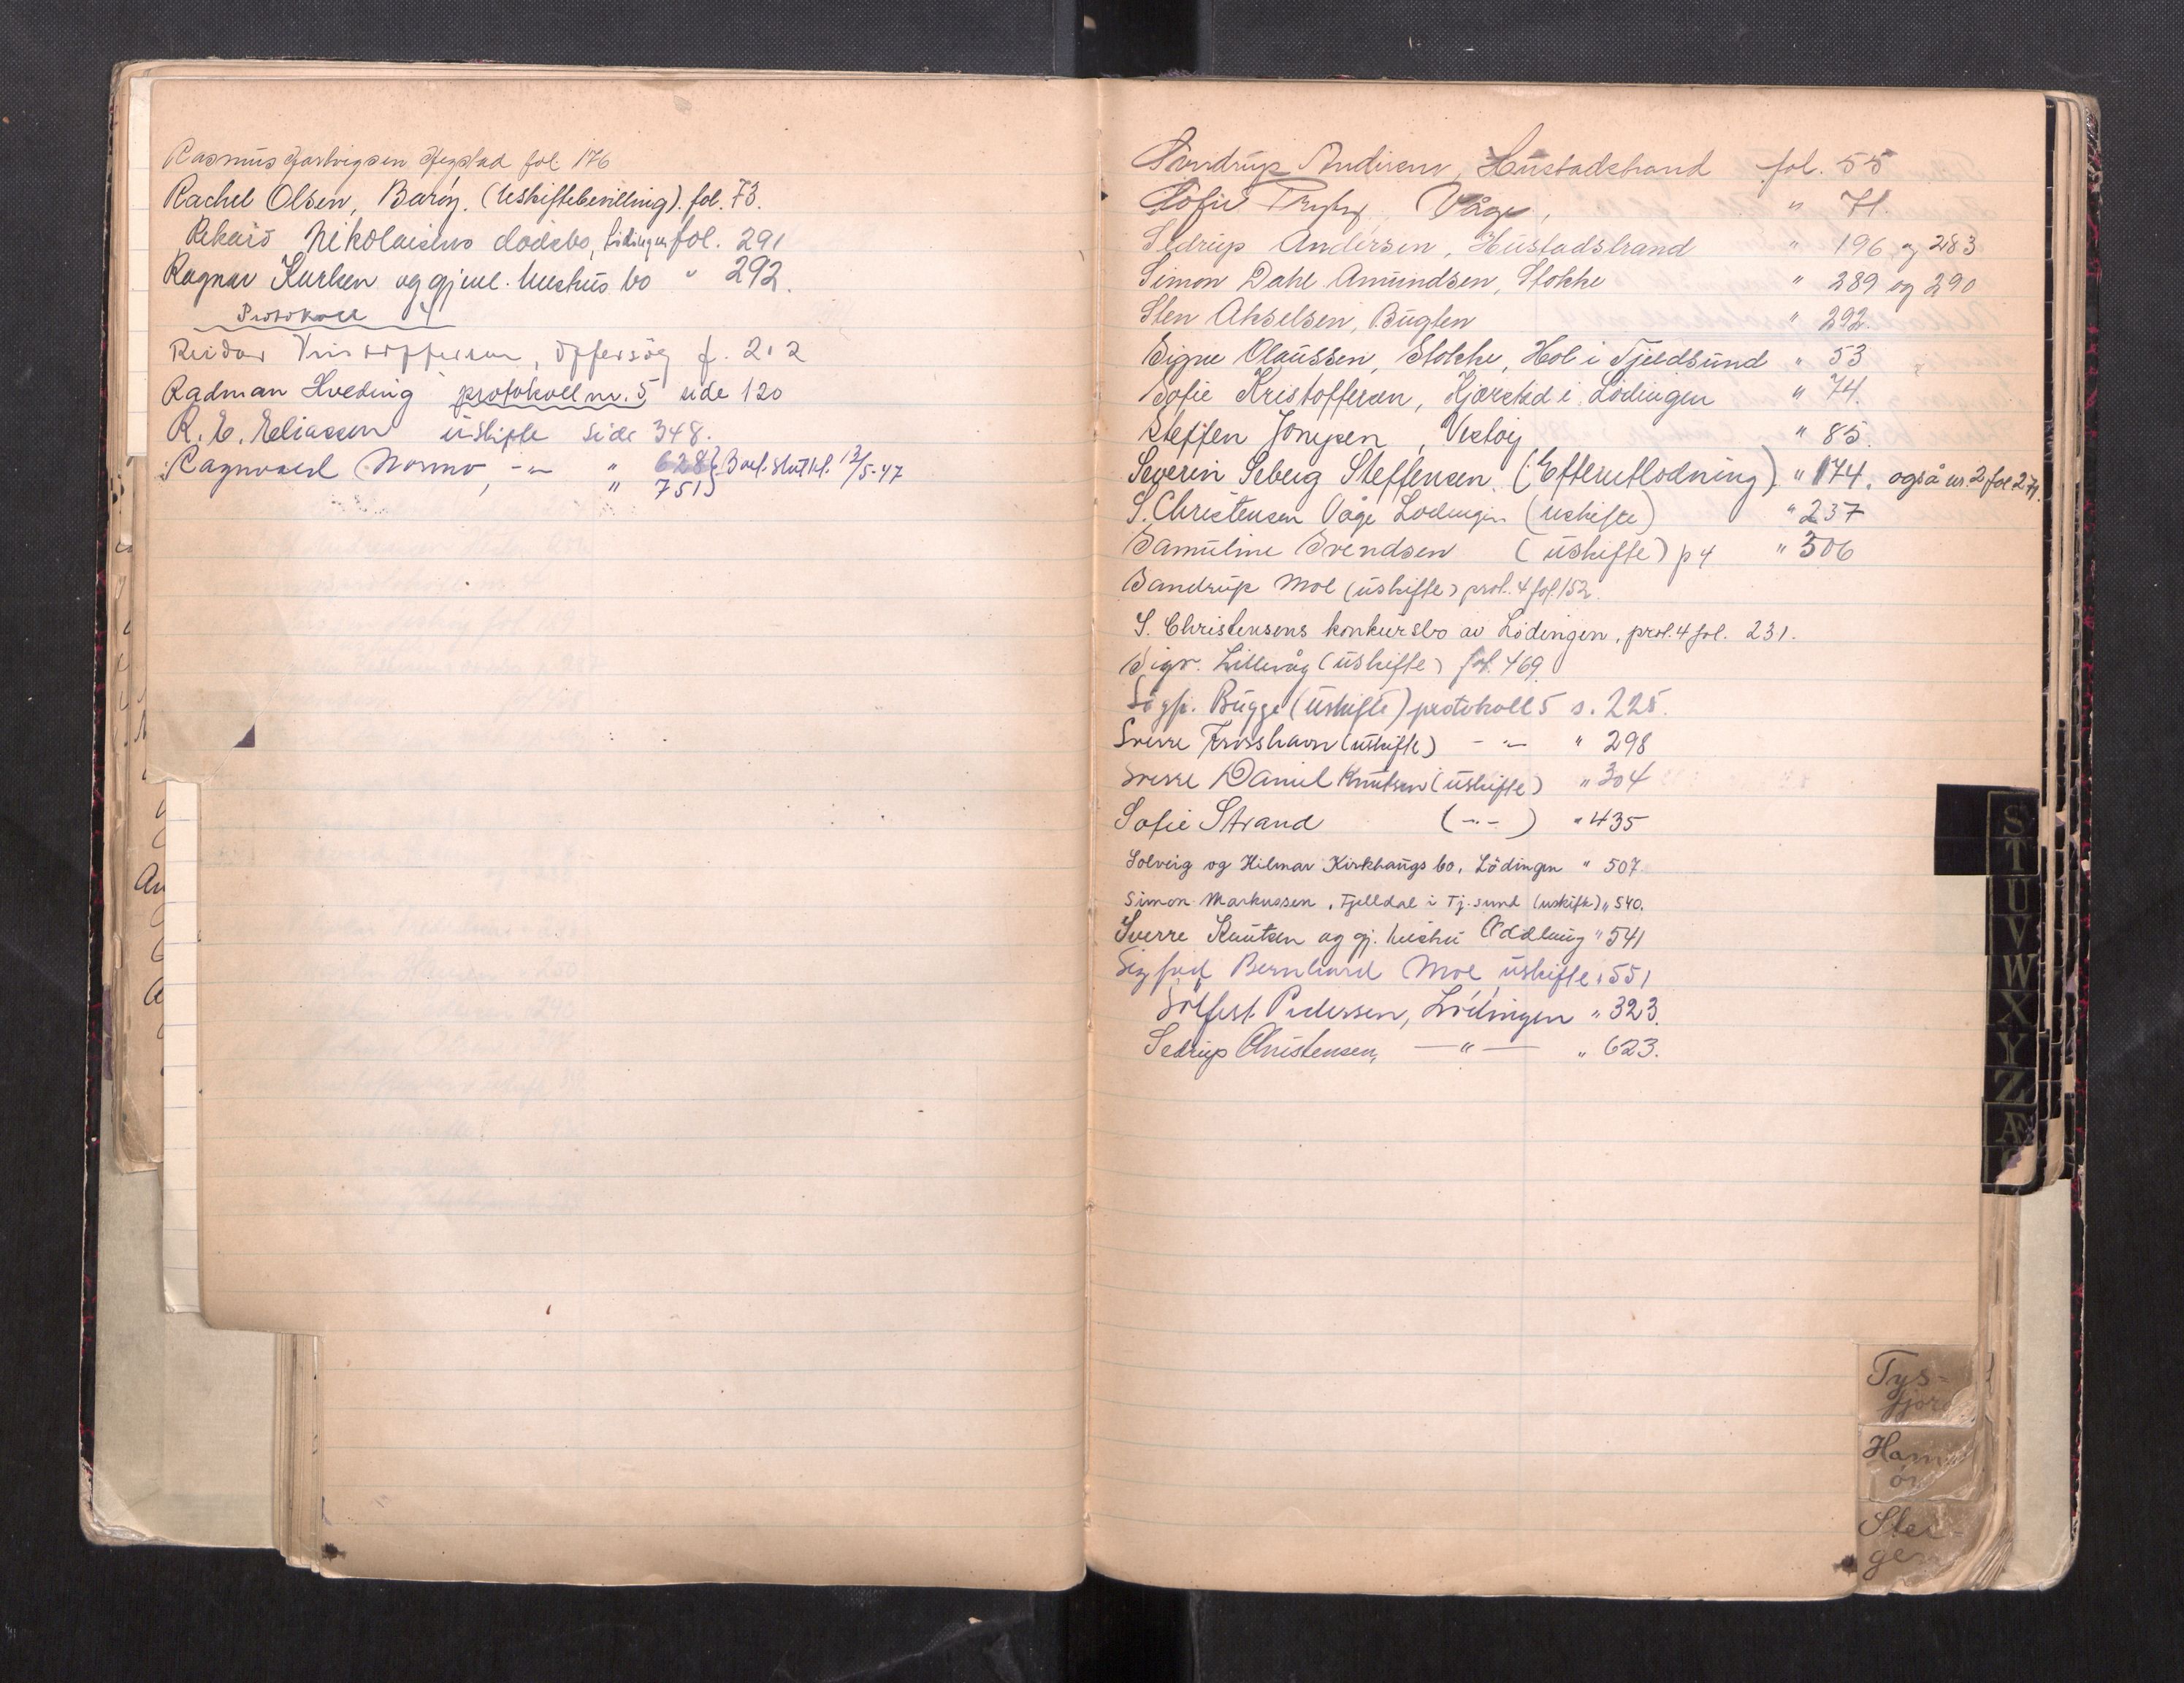 Rasmus Hartvigsen Hegstad fol. 176
Rachel Olsen, Barøy. (Uskiftebevilling). fol. 73.
Rikard Nikolaisens dødsbo, Lödingen fol. 291
Ragnar Karlsen og gjenl. hustrus bo " 292.
Protokoll 4
Reidar Kristoffersen, Offersøy f. 212
Radman Hveding protokoll nr. 5 side 120
R. E. Eliassen uskifte side 348.
Ragnvald Normo, -"- " 628 } Boet sluttet 12/5-47
" 751
Andersen, Hustadstrand fol. 55
Sofie Våge, " 71.
Sedrup Andersen, Hustadstrand " 196 og 283
Simon Dahl Amundsen, Stokke " 289 og 290
Sten Akselsen, Bugten " 292.
Signe Olaussen, Stokke, Hol i Tjeldsund " 53
Sofie Kristoffersen, Kjærstad i Lödingen " 74.
Steffen Jonssen, " 85.
Severin Seberg Steffensen. (Efterutlodning) " 174. også nr. 2 fol 271.
S. Christensen Våge Lödingen (uskifte) " 237
Samuline Svendsen (uskifte) p 4 " 306
Sandrup Moe (uskifte) prot. 4 fol. 152.
S. Christensens konkursbo av Lödingen, prot. 4 fol. 231.
Sigv. Lillevåg (uskifte) fol. 469.
Sigfr. Bugge (uskifte) protokoll 5 s. 225.
Sverre (uskifte) - " - " 298
Sverre Daniel Knutsen (uskifte) " 304
Sofie Strand (-"-) " 435
Solveig og Hilmar Kirkhaugs bo, Lödingen " 507
Simon Markussen, Fjelldal i Tj.sund (uskifte) " 540.
Sverre Knutsen og gj. hustru Oddlaug " 541
Sigfred Bernhard Moe, uskifte " 551
Sölfest Pedersen, Lödingen " 323.
Sedrup Christensen, — " — " 623.
S
T
U
V
W
X
Y
Z
Æ
Tys-
fjord
Ham-
ör
Stei-
gen